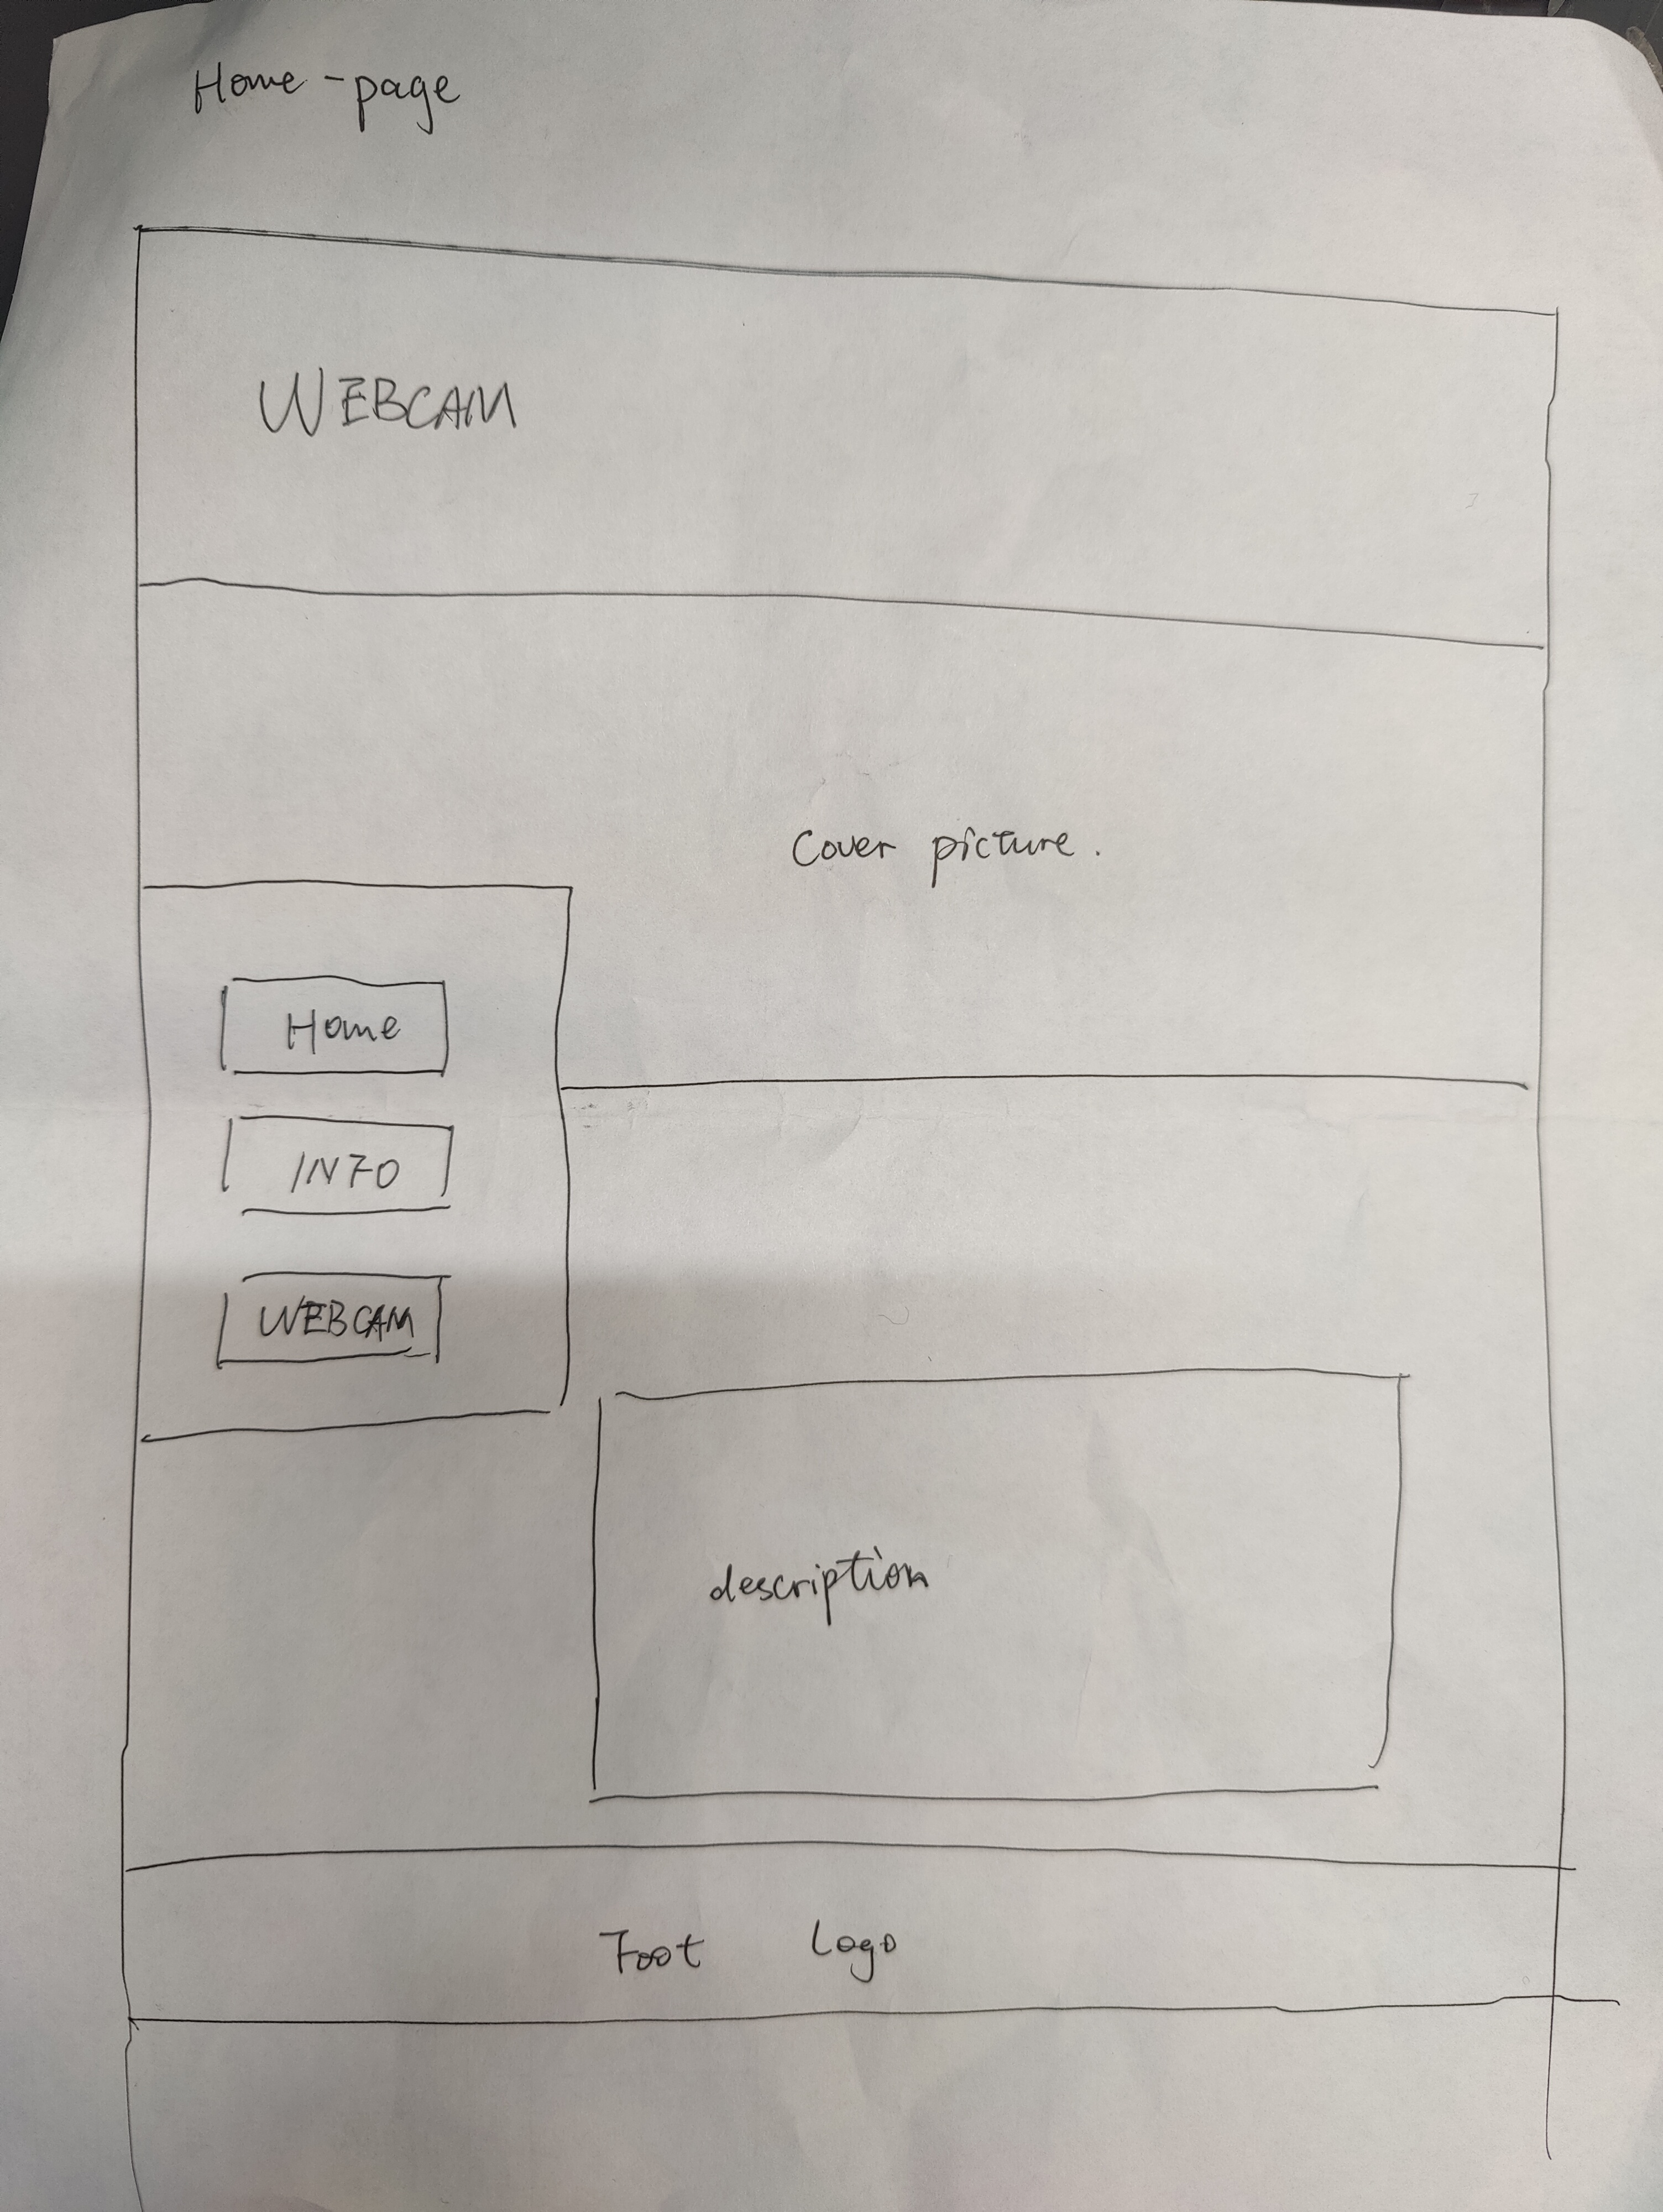 Home-page
WEBCAM
Cover picture.
Home
INFO
WEBCAM
description
Foot Logo